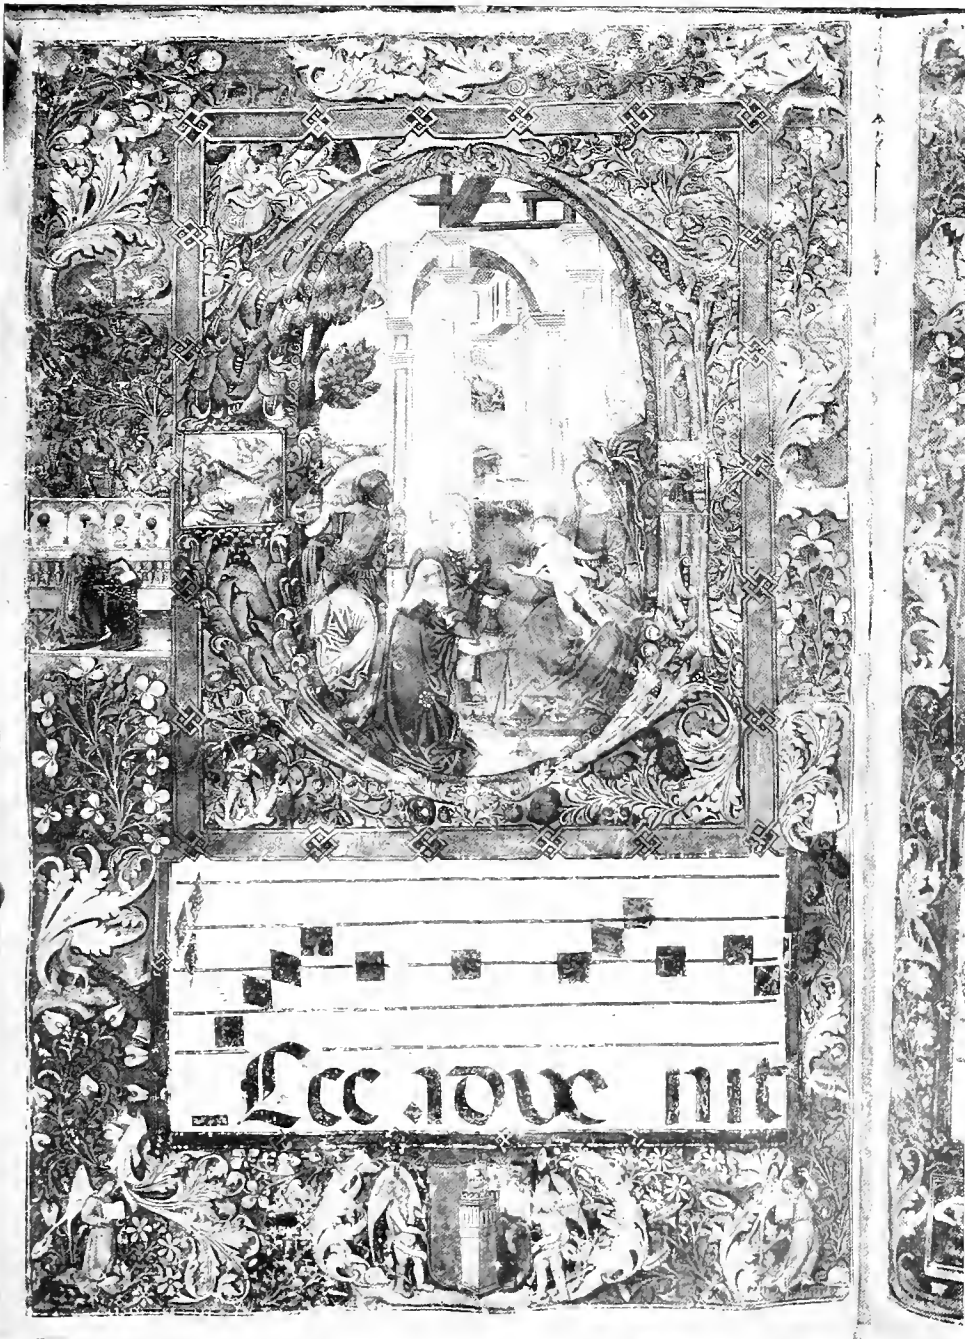 Ecce adue nit